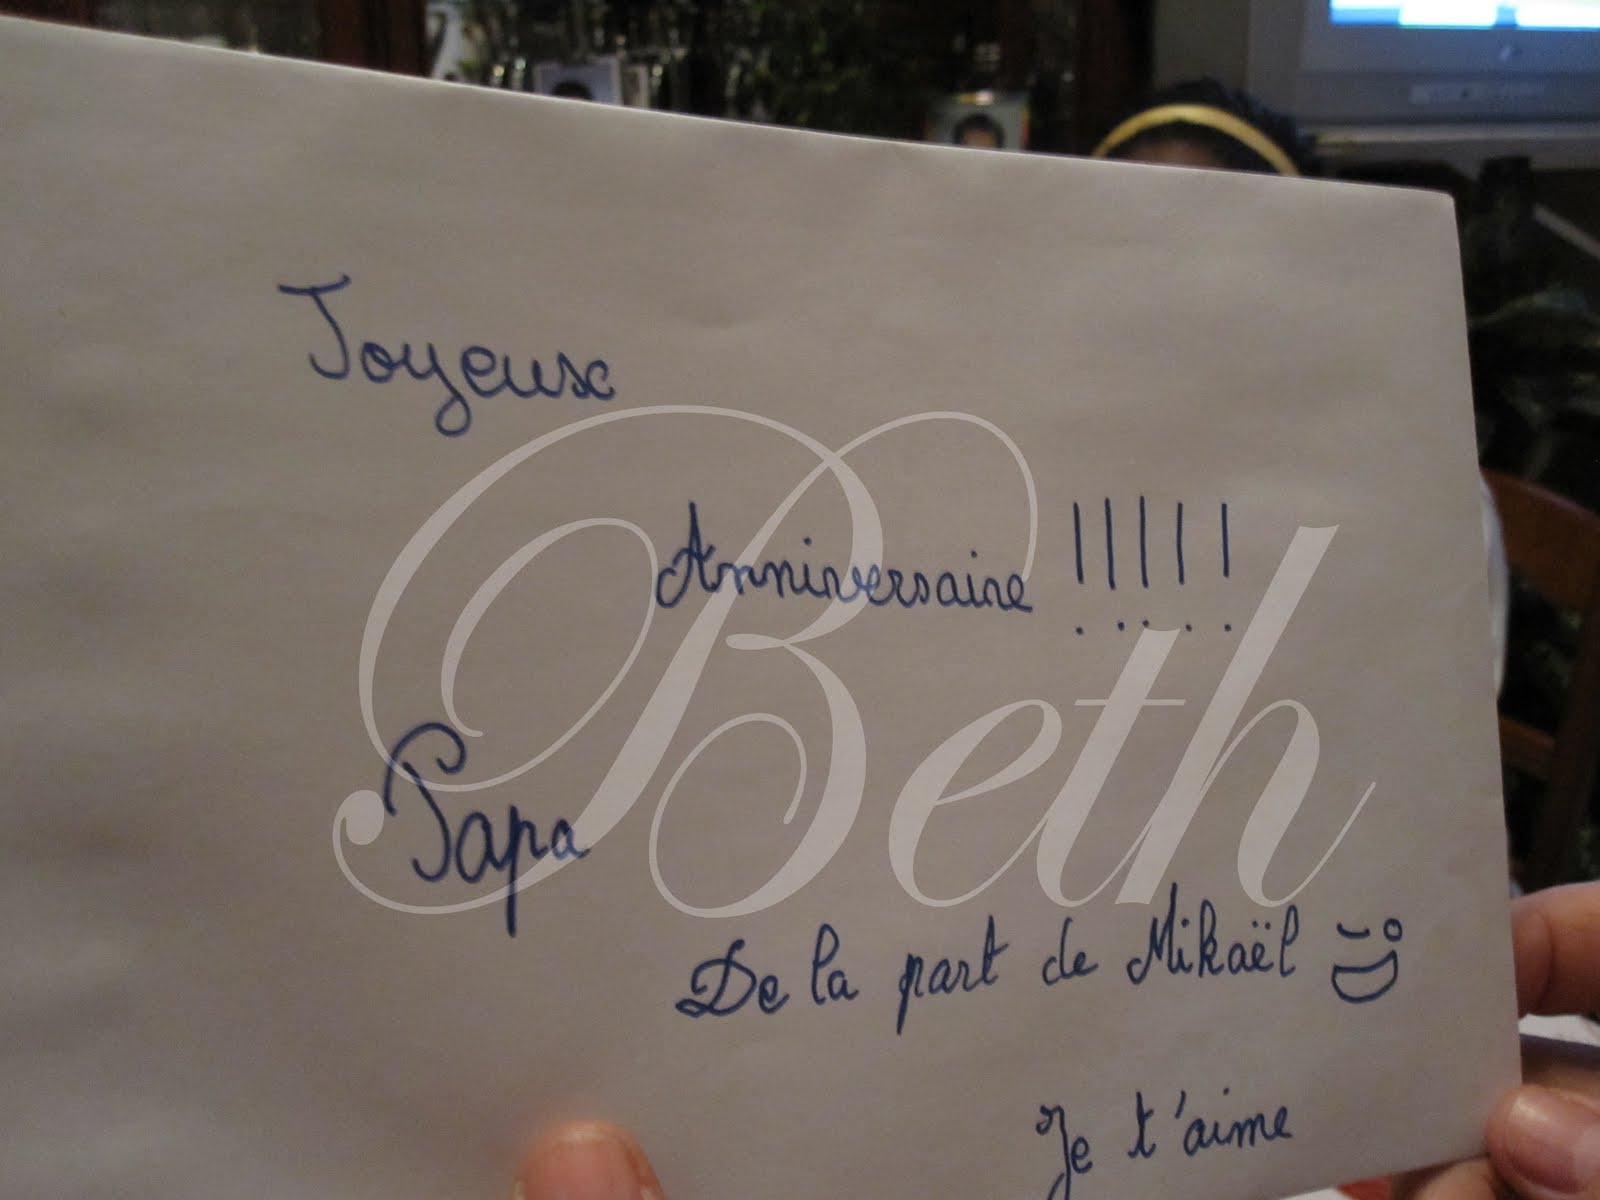 Joyeux
Anniversaire !!!!!
Beth
Papa
De la part de Mikaël
Je t'aime